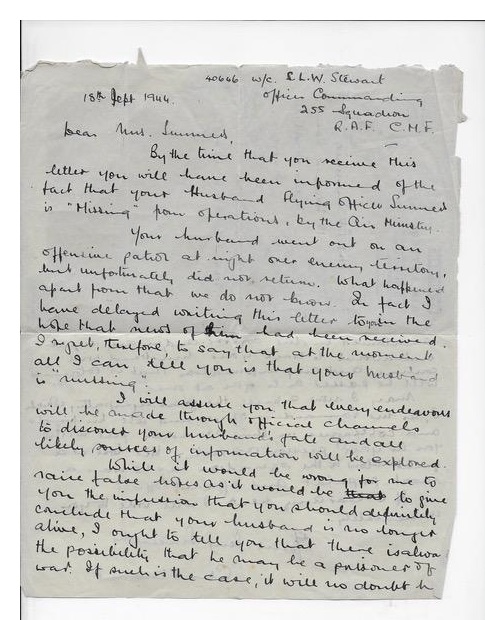 40646 W/C. L.L.W. Stewart
18th Sept 1944.
Officer Commanding
255 Squadron
R.A.F. C.M.F.
Dear Mrs. Summers,
By the time that you receive this
letter you will have been informed of the
fact that your Husband Flying Officer Summers
is "Missing" from operations, by the Air Ministry.
Your husband went out on an
offensive patrol at night over enemy territory,
but unfortunately did not return. What happened
apart from that we do not know. In fact I
have delayed writing this letter to you in the
hope that news of him had been received.
I regret, therefore, to say that at the moment
all I can tell you is that your husband
is "missing".
I will assure you that every endeavour
will be made through official channels
to discover your husband's fate and all
likely sources of information will be explored.
While it would be wrong for me to
raise false hopes as it would be that to give
you the impression that you should definitely
conclude that your husband is no longer
alive, I ought to tell you that there is alwa
the possibility that he may be a prisoner of
war. If such is the case, it will no doubt b